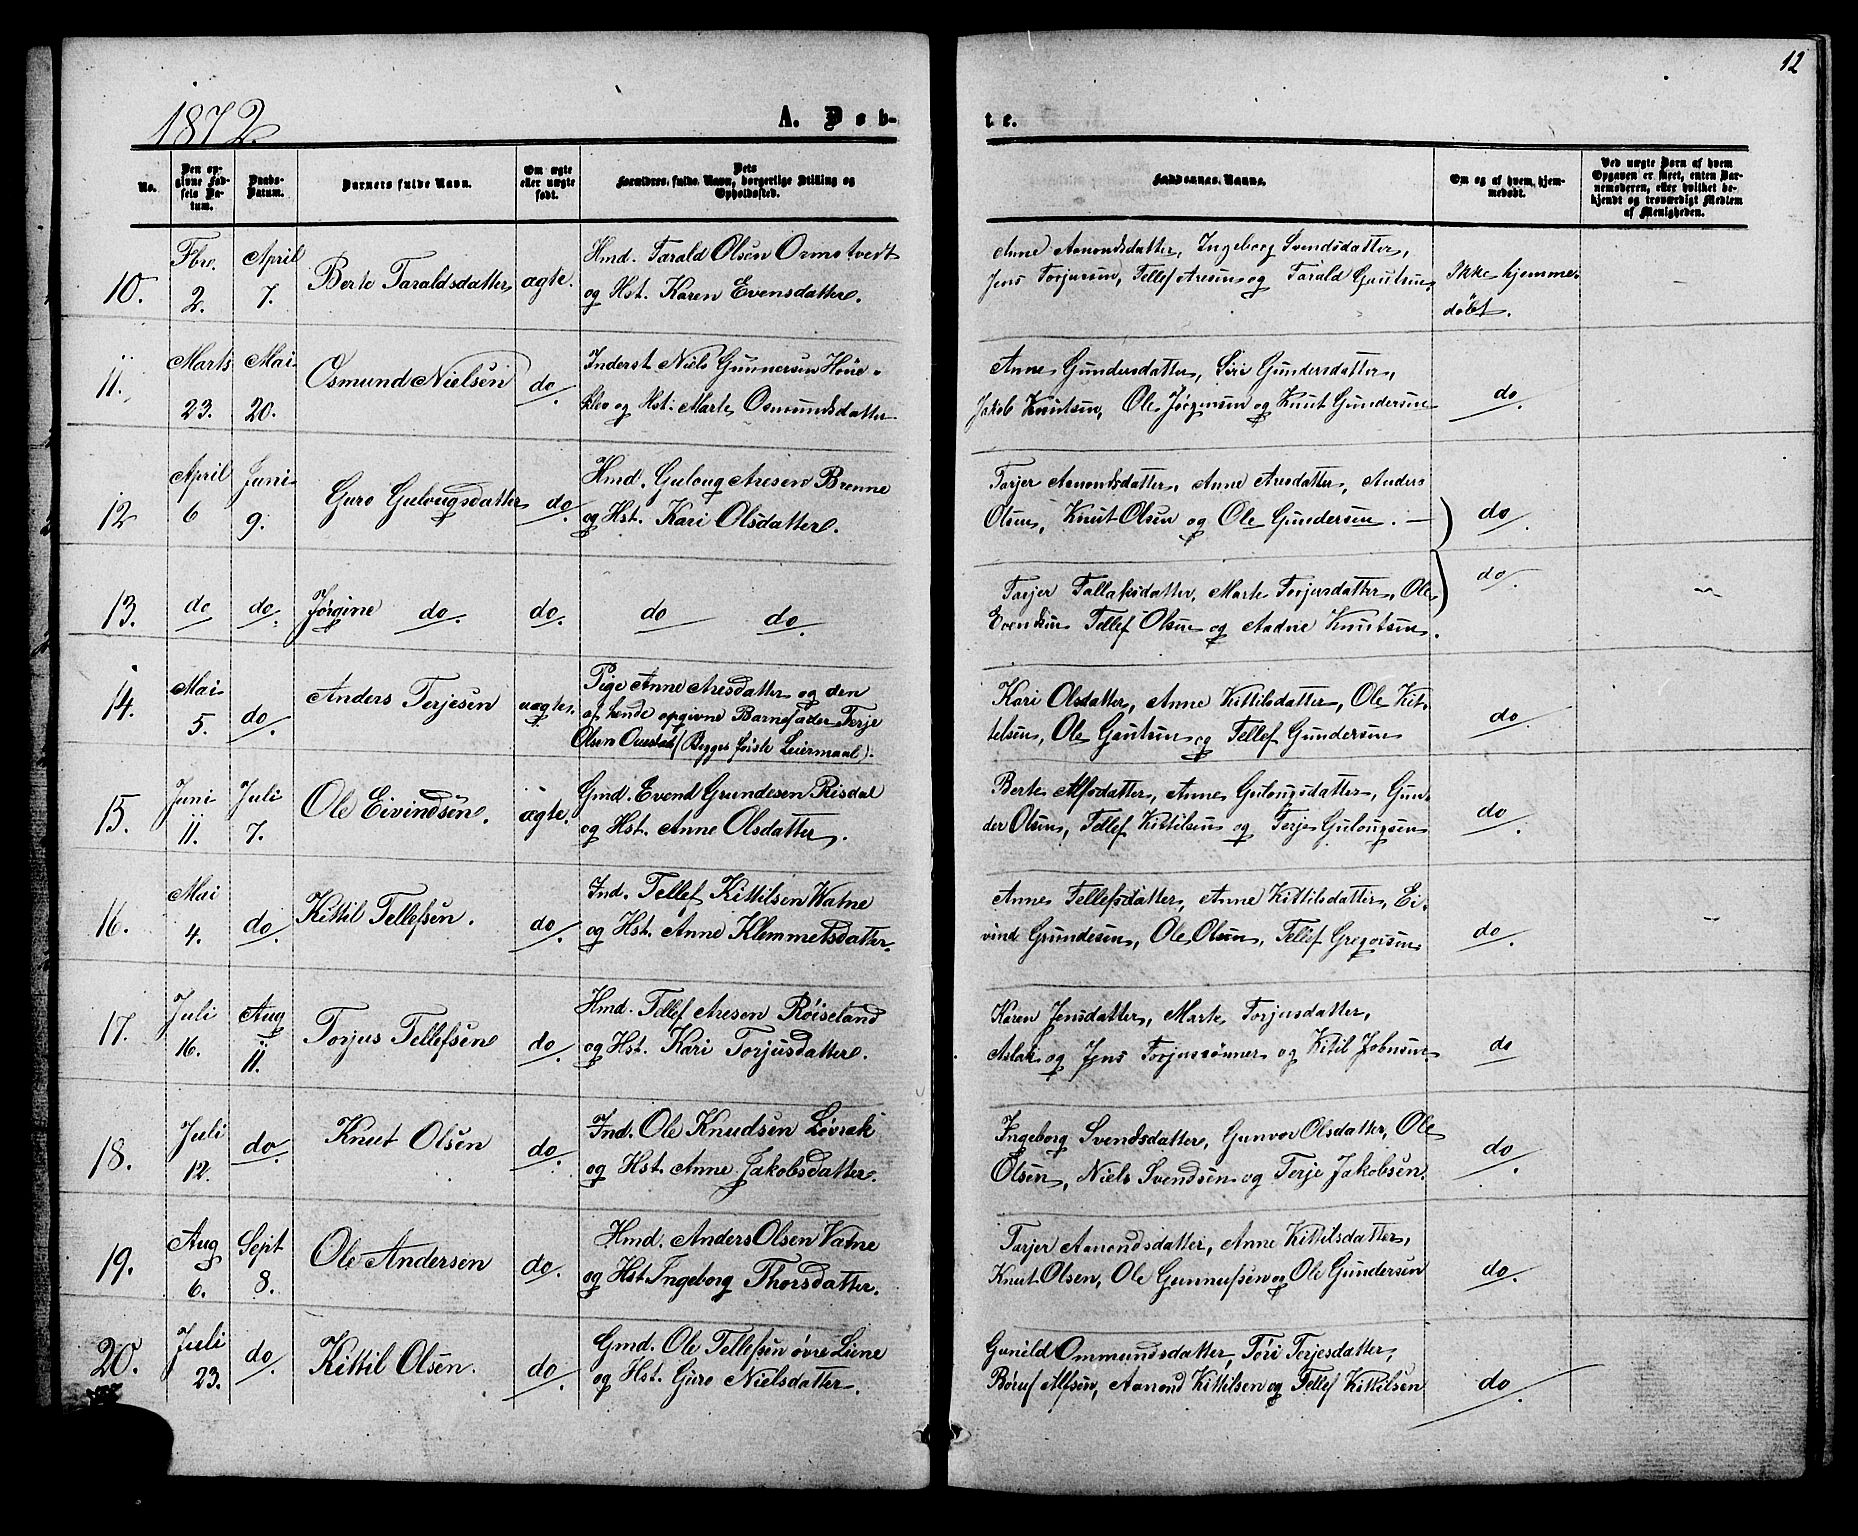 12
1872.
A. Døb-
te.
No.
Den op-
givne Fød-
sels Da-
tum.
Daabs-
Datum.
Barnets fulde Navn.
Om ægte
eller uægte
født.
Dets
Forældres fulde Navn, borgerlige Stilling og
Opholdssted.
Faddernes Navne.
Om og af hvem hjem-
medøbt.
Ved uægte Børn af hvem
Opgaven er skeet, enten Bar-
nemoderen, eller hvilket be-
kjendt og troværdigt Medlem
af Menigheden.
10.
Fbr.
2.
April
7.
Berte Taraldsdatter
ægte.
Hmd. Tarald Olsen Ormstvedt
og Hst. Karen Evensdatter.
Anne Aamondsdatter, Ingeborg Svendsdatter,
Jens Torjussen, Tellef Aresen og Tarald Gautsen
Ikke hjemme-
døbt.
11.
Marts
23.
Mai
20.
Osmund Nielsen
do.
Inderst Niels Gunnersen Høne-
klev og Hst. Marte Osmundsdatter
Anne Gundersdatter, Siri Gundersdatter,
Jakob Knutsen, Ole Jørgensen og Knut Gundersen
do.
12
April
6
Juni
9.
Guro Gulougsdatter
do.
Hmd. Guloug Aresen Brenne
og Hst. Kari Olsdatter.
Tarjer Aamondsdatter, Anne Aresdatter, Anders
Olsen, Knut Olsen og Ole Gundersen. —
do.
13.
do
do.
Jørgine do.
do.
do do.
Tarjer Tallaksdatter, Marte Torjusdatter, Ole
Evendsen Tellef Olsen og Aadne Knutsen.
do.
14.
Mai
5.
do.
Anders Terjesen
uægte.
Pige Anne Aresdatter og den
af hende opgivne Barnefader Terje
Olsen Ouestad (Begges første Leiermaal).
Kari Olsdatter, Anne Kittilsdatter, Ole Kit-
telsen, Ole Gautsen og Tellef Gundersen
do
15.
Juni
11.
Juli
7.
Ole Eivindsen.
ægte.
Gmd. Evend Grundesen Risdal
og Hst. Anne Olsdatter.
Berte Alfsdatter, Anne Gulougsdatter, Gun-
der Olsen, Tellef Kittilsen og Terje Gulougsen
do.
16.
Mai
4.
do.
Kittil Tellefsen.
do.
Ind. Tellef Kittilsen Watne
og Hst. Anne Klemmetsdatter.
Anne Tellefsdatter, Anne Kittilsdatter, Ei-
vind Grundesen, Ole Olsen, Tellef Gregorsen
do.
17.
Juli
16.
Aug
11.
Torjus Tellefsen
do.
Hmd. Tellef Aresen Røiseland
og Hst. Kari Torjusdatter.
Karen Jensdatter, Marte Torjusdatter,
Aslak og Jens Torjussønner og Kitil Jobnsen
do
18.
Juli
12.
do.
Knut Olsen
do.
Ind. Ole Knudsen Løvrak
og Hst. Anne Jakobsdatter.
Ingeborg Svendsdatter, Gunvor Olsdatter, Ole
Olsen, Niels Svendsen og Terje Jakobsen.
do.
19.
Aug
6.
Sept
8.
Ole Andersen
do.
Hmd. Anders Olsen Vatne
og Hst. Ingeborg Thorsdatter.
Tarjer Aamondsdatter, Anne Kittilsdatter,
Knut Olsen, Ole Gunnufsen og Ole Gundersen
do.
20.
Juli
23.
do.
Kittil Olsen.
do.
Gmd. Ole Tellefsen øvre Liene
og Hst. Guro Nielsdatter.
Gunild Ommundsdatter, Tøri Terjesdatter,
Børuf Alfsen, Aamond Kittilsen og Tellef Kittilsen
do.